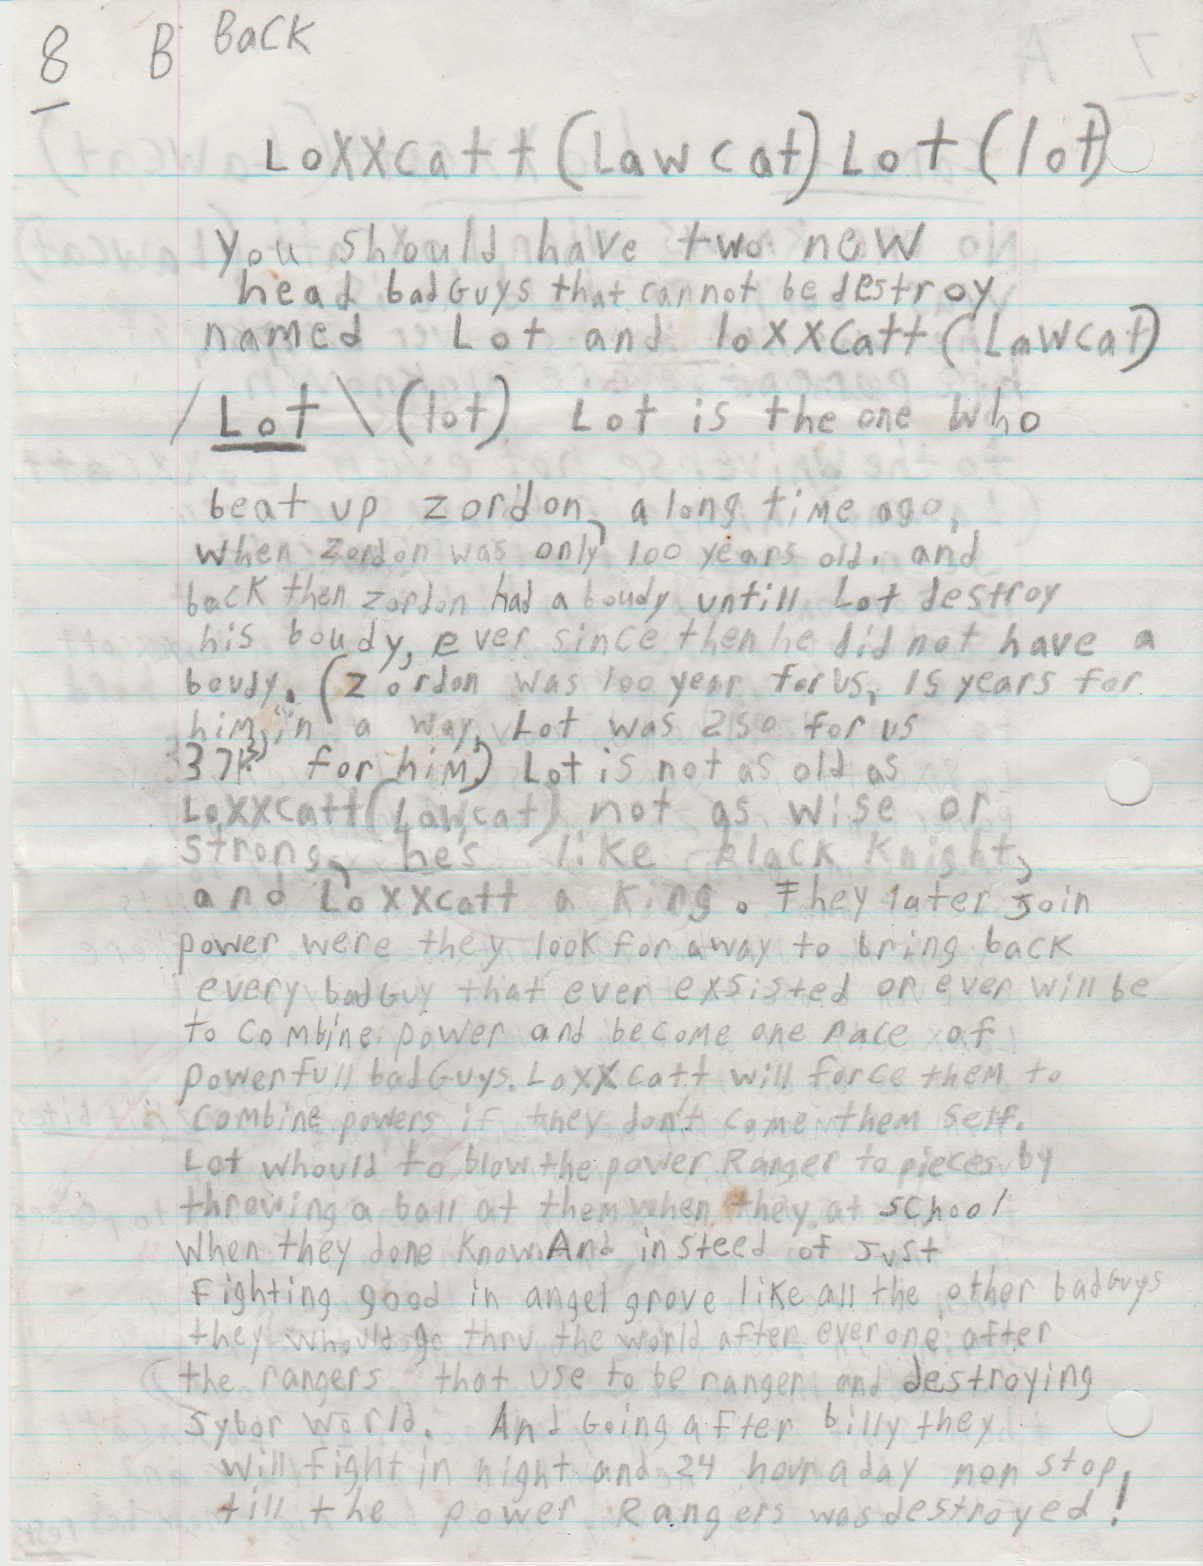 8 B Back
Loxxcatt (Lawcat) Lot (lot)
You should have two new
head badGuys that cannot be destroy
named Lot and loxxcatt (Lawcat)
/ Lot \ (lot) Lot is the one who
beat up zordon, a long time ago,
when zordon was only 100 years old. and
back then zordon had a boudy untill Lot destroy
his boudy, ever since then he did not have a
boudy. (zordon was 100 year for us, 15 years for
him, in a way, Lot was 250 for us
for him) Lot is not as old as
Loxxcatt (Lawcat) not as wise or
strong, he's like black knight,
and Loxxcatt a King. They later Join
power were they look for away to bring back
every badGuy that ever exsisted or ever will be
to combine power and become one race of
powerfull badGuys. Loxxcatt will force them to
combine powers if they don't come them self.
Lot whould to blow the power Ranger to pieces by
throwing a ball at them when they at school
when they done know. And in steed of Just
Fighting good in angel grove like all the other badGuys
they whould go thru the world after everone after
the rangers that use to be ranger and destroying
Sybor world. And Going aFter billy they
will fight in night and 24 hour a day non stop,
till the power Rangers was destroyed!